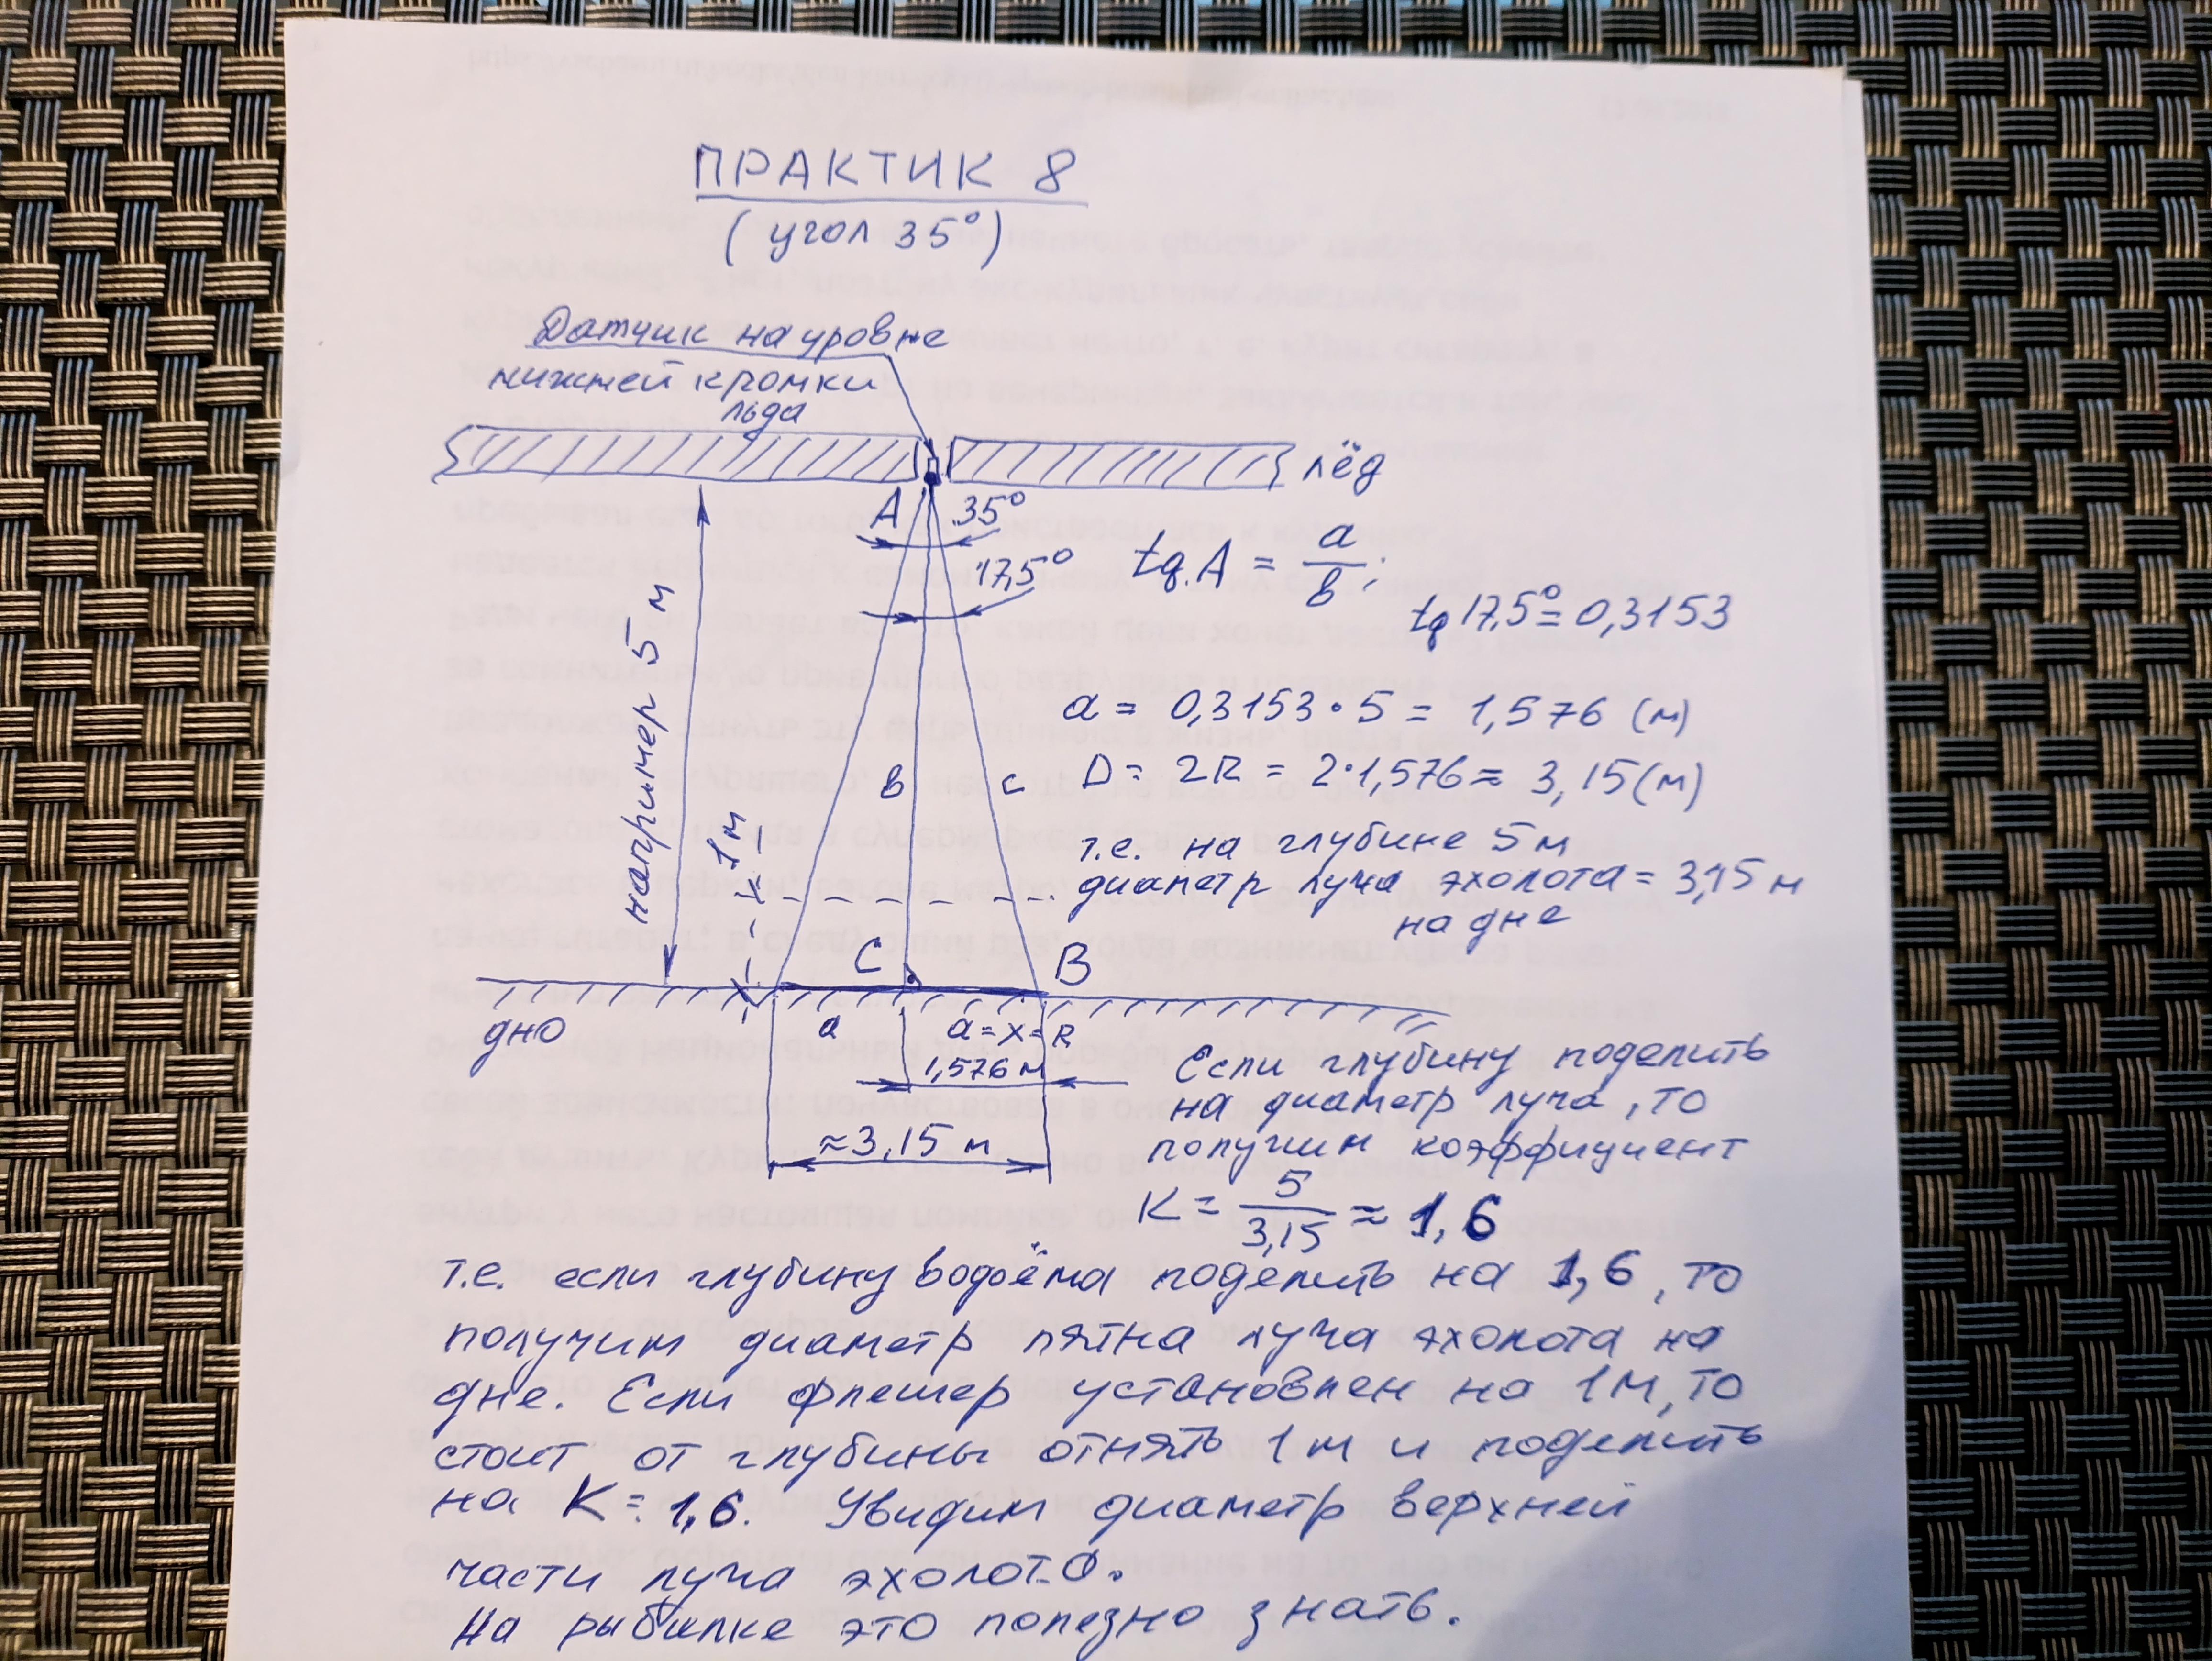 ПРАКТИК 8
(угол 35°)
Датчик на уровне
нижней кромки
льда
лёд
A 35°
17,5°
tg.A = a/в;
tg 17,5° = 0,3153
например 5 м
a = 0,3153 · 5 = 1,576 (м)
D = 2R = 2·1,576 = 3,15(м)
в c
1 м
т.е. на глубине 5м
диаметр луча эхолота = 3,15 м
на дне
C B
дно
a a = x = R
1,576 м
≈3,15 м
Если глубину поделить
на диаметр луча, то
получим коэффициент
K = 5/3,15 ≈ 1,6
т.е. если глубину водоёма поделить на 1,6, то
получим диаметр пятна луча эхолота на
дне. Если флешер установлен на 1м, то
стоит от глубины отнять 1м и поделить
на K = 1,6. Увидим диаметр верхней
части луча эхолота.
На рыбалке это полезно знать.